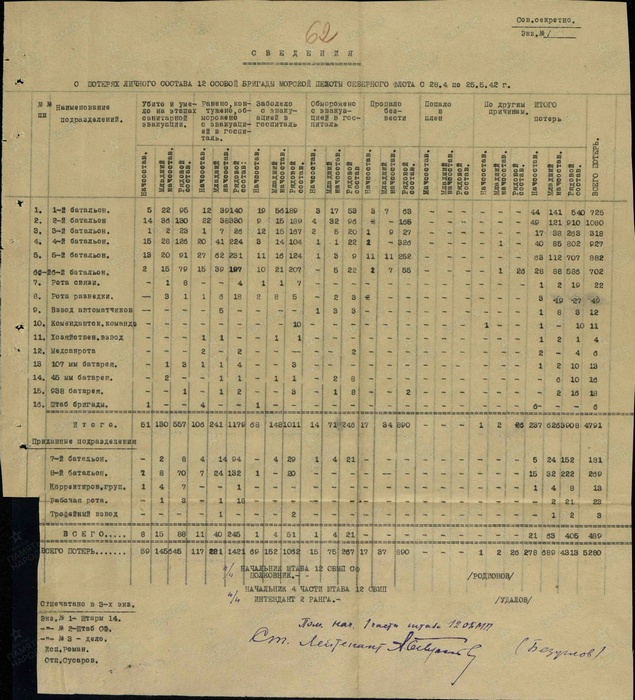 Сов.секретно.
Экз.№1
62
С В Е Д Е Н И Я
О ПОТЕРЯХ ЛИЧНОГО СОСТАВА 12 ОСОБОЙ БРИГАДЫ МОРСКОЙ ПЕХОТЫ СЕВЕРНОГО ФЛОТА С 28.4 по 25.5.42 г.
№ № пп Наименование подразделений. Убито и умерло на этапах санитарной эвакуации. Ранено, контужено, обморожено с эвакуацией в госпиталь. Заболело с эвакуацией в госпиталь Обморожено с эвакуацией в госпиталь Пропало без-вести Попало в плен По другим причинам. ИТОГО потерь ВСЕГО ПОТЕРЬ.
Начсостав. Младший начсостав. Рядовой состав.
1. 1-й батальон. 5 22 95 12 39 140 19 56 189 3 17 53 3 7 63 - - - - - - 44 141 540 725
2. 2-й батальон 14 36 130 22 38 330 9 15 189 4 32 96 - - 165 - - - - - - 49 121 910 1080
3. 3-й батальон. 1 2 23 1 7 26 12 15 167 2 5 20 1 9 27 - - - - - - 17 38 263 318
4. 4-й батальон. 15 28 126 20 41 224 3 14 104 1 1 22 - 326 - - - - 1 - 40 85 802 927
5. 5-й батальон. 13 20 91 27 62 231 11 16 124 1 3 9 11 11 252 - - - - - - 63 112 707 882
6-й батальон. 2 15 79 15 39 197 10 21 207 - 5 22 2 7 55 - - - - 1 26 28 88 586 702
7. Рота связи. - 1 8 - - 4 1 1 7 - - - - - - - - - - - - 1 2 19 22
8. Рота разведки. - 3 1 1 6 18 2 8 5 - 2 3 - - - - - - - - 3 19 27 49
9. Взвод автоматчиков - - - - 5 - - - - 1 3 3 - - - - - - - - - 1 8 3 12
10. Комендантск.команда - - - - - 10 - - - - - - - - - 1 - - 1 - 10 11
11. Хозяйствен.взвод - - - 1 1 - - 1 1 - - - - - - - - - - - - 1 2 1 4
12. Медсанрота - - - 2 - 2 - - - - - 2 - - - - - - - - - 2 - 4 6
13 107 мм батарея. - 1 3 1 1 4 - - 3 - - - - - - - - - - - 1 2 10 13
14. 45 мм батарея. - 2 - - 1 1 - 1 1 - 2 8 - - - - - - - - - - 6 10 16
15. 938 батарея. - - 1 - 2 - - 3 - 1 8 - - 2 - - - - - - - 2 16 18
16. Штаб бригады. 1 - - 4 - - 1 6 - - 6
И т о г о. 51 130 557 106 241 1179 68 148 1011 14 71 246 17 34 890 - - - 1 2 26 237 626 3908 4791
Приданные подразделения
7-й батальон. - 2 8 4 14 94 - 4 29 1 4 21 - - - - - - - - - 5 24 152 181
8-й батальон. 7 8 70 7 24 132 1 - 20 - - - - - - - - - - - - 15 32 222 269
Корректиров.груп. 1 4 7 - - 1 - - - - - - - - - - - - - - - 1 4 8 13
Рабочая рота. - 1 3 - 1 18 - - - - - - - - - - - - - - - - 2 21 23
Трофейный взвод - - - - 1 - - - 2 - - - - - - - - - - - - - 1 2 3
В С Е Г О..... 8 15 88 11 40 245 1 4 51 1 4 21 - - - - - - - - - 21 63 405 489
ВСЕГО ПОТЕРЬ... 59 145 645 117 281 1421 69 152 1062 15 75 267 17 37 890 - - - 1 2 26 278 689 4313 5280
п/п НАЧАЛЬНИК ШТАБА 12 ОБМП СФ
ПОЛКОВНИК.- - /РОДИОНОВ/
п/п НАЧАЛЬНИК 4 ЧАСТИ ШТАБА 12 ОБМП
ИНТЕНДАНТ 2 РАНГА.- /УДАЛОВ/
Отпечатано в 3-х экз.
Экз.№ 1- Штарм 14.
-"- № 2-Штаб СФ.
-"- № 3 - дело.
Исп.Роман.
Отп.Сусаров.
Пом. нач. 1 части штаба 12 ОБМП
Ст. Лейтенант (Безуглов)